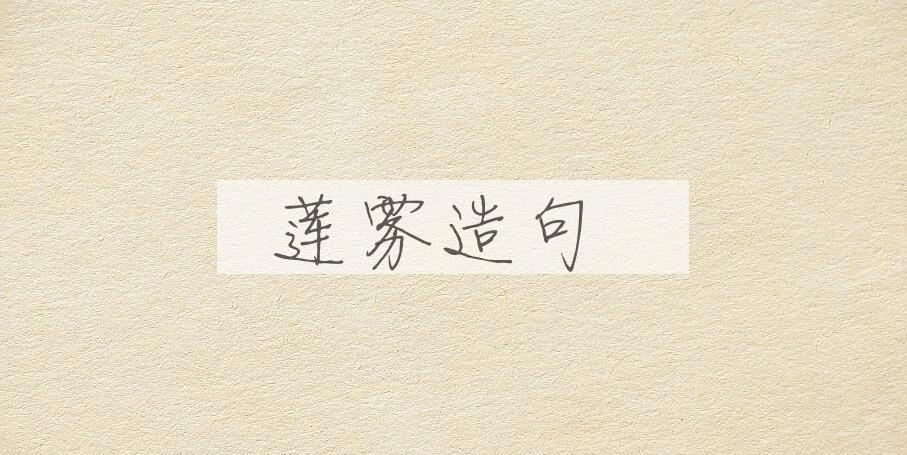 莲雾造句